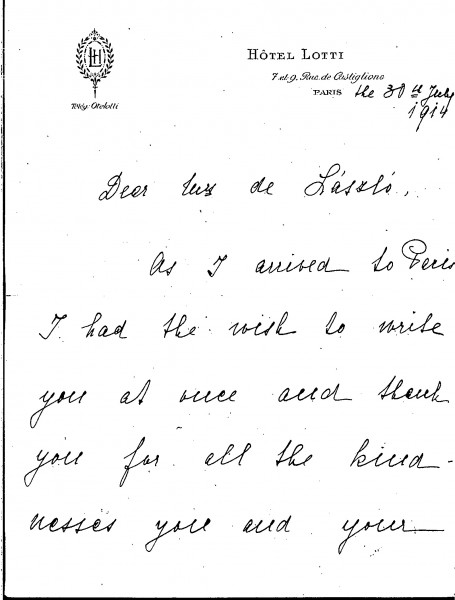 LH
HÔTEL LOTTI
7 et 9, Rue de Castiglione
Télég: Otelotti
PARIS the 30th July
1914
Dear Mrs de László,
As I arrived to Paris
I had the wish to write
you at once and thank
you for all the kind-
nesses you and your